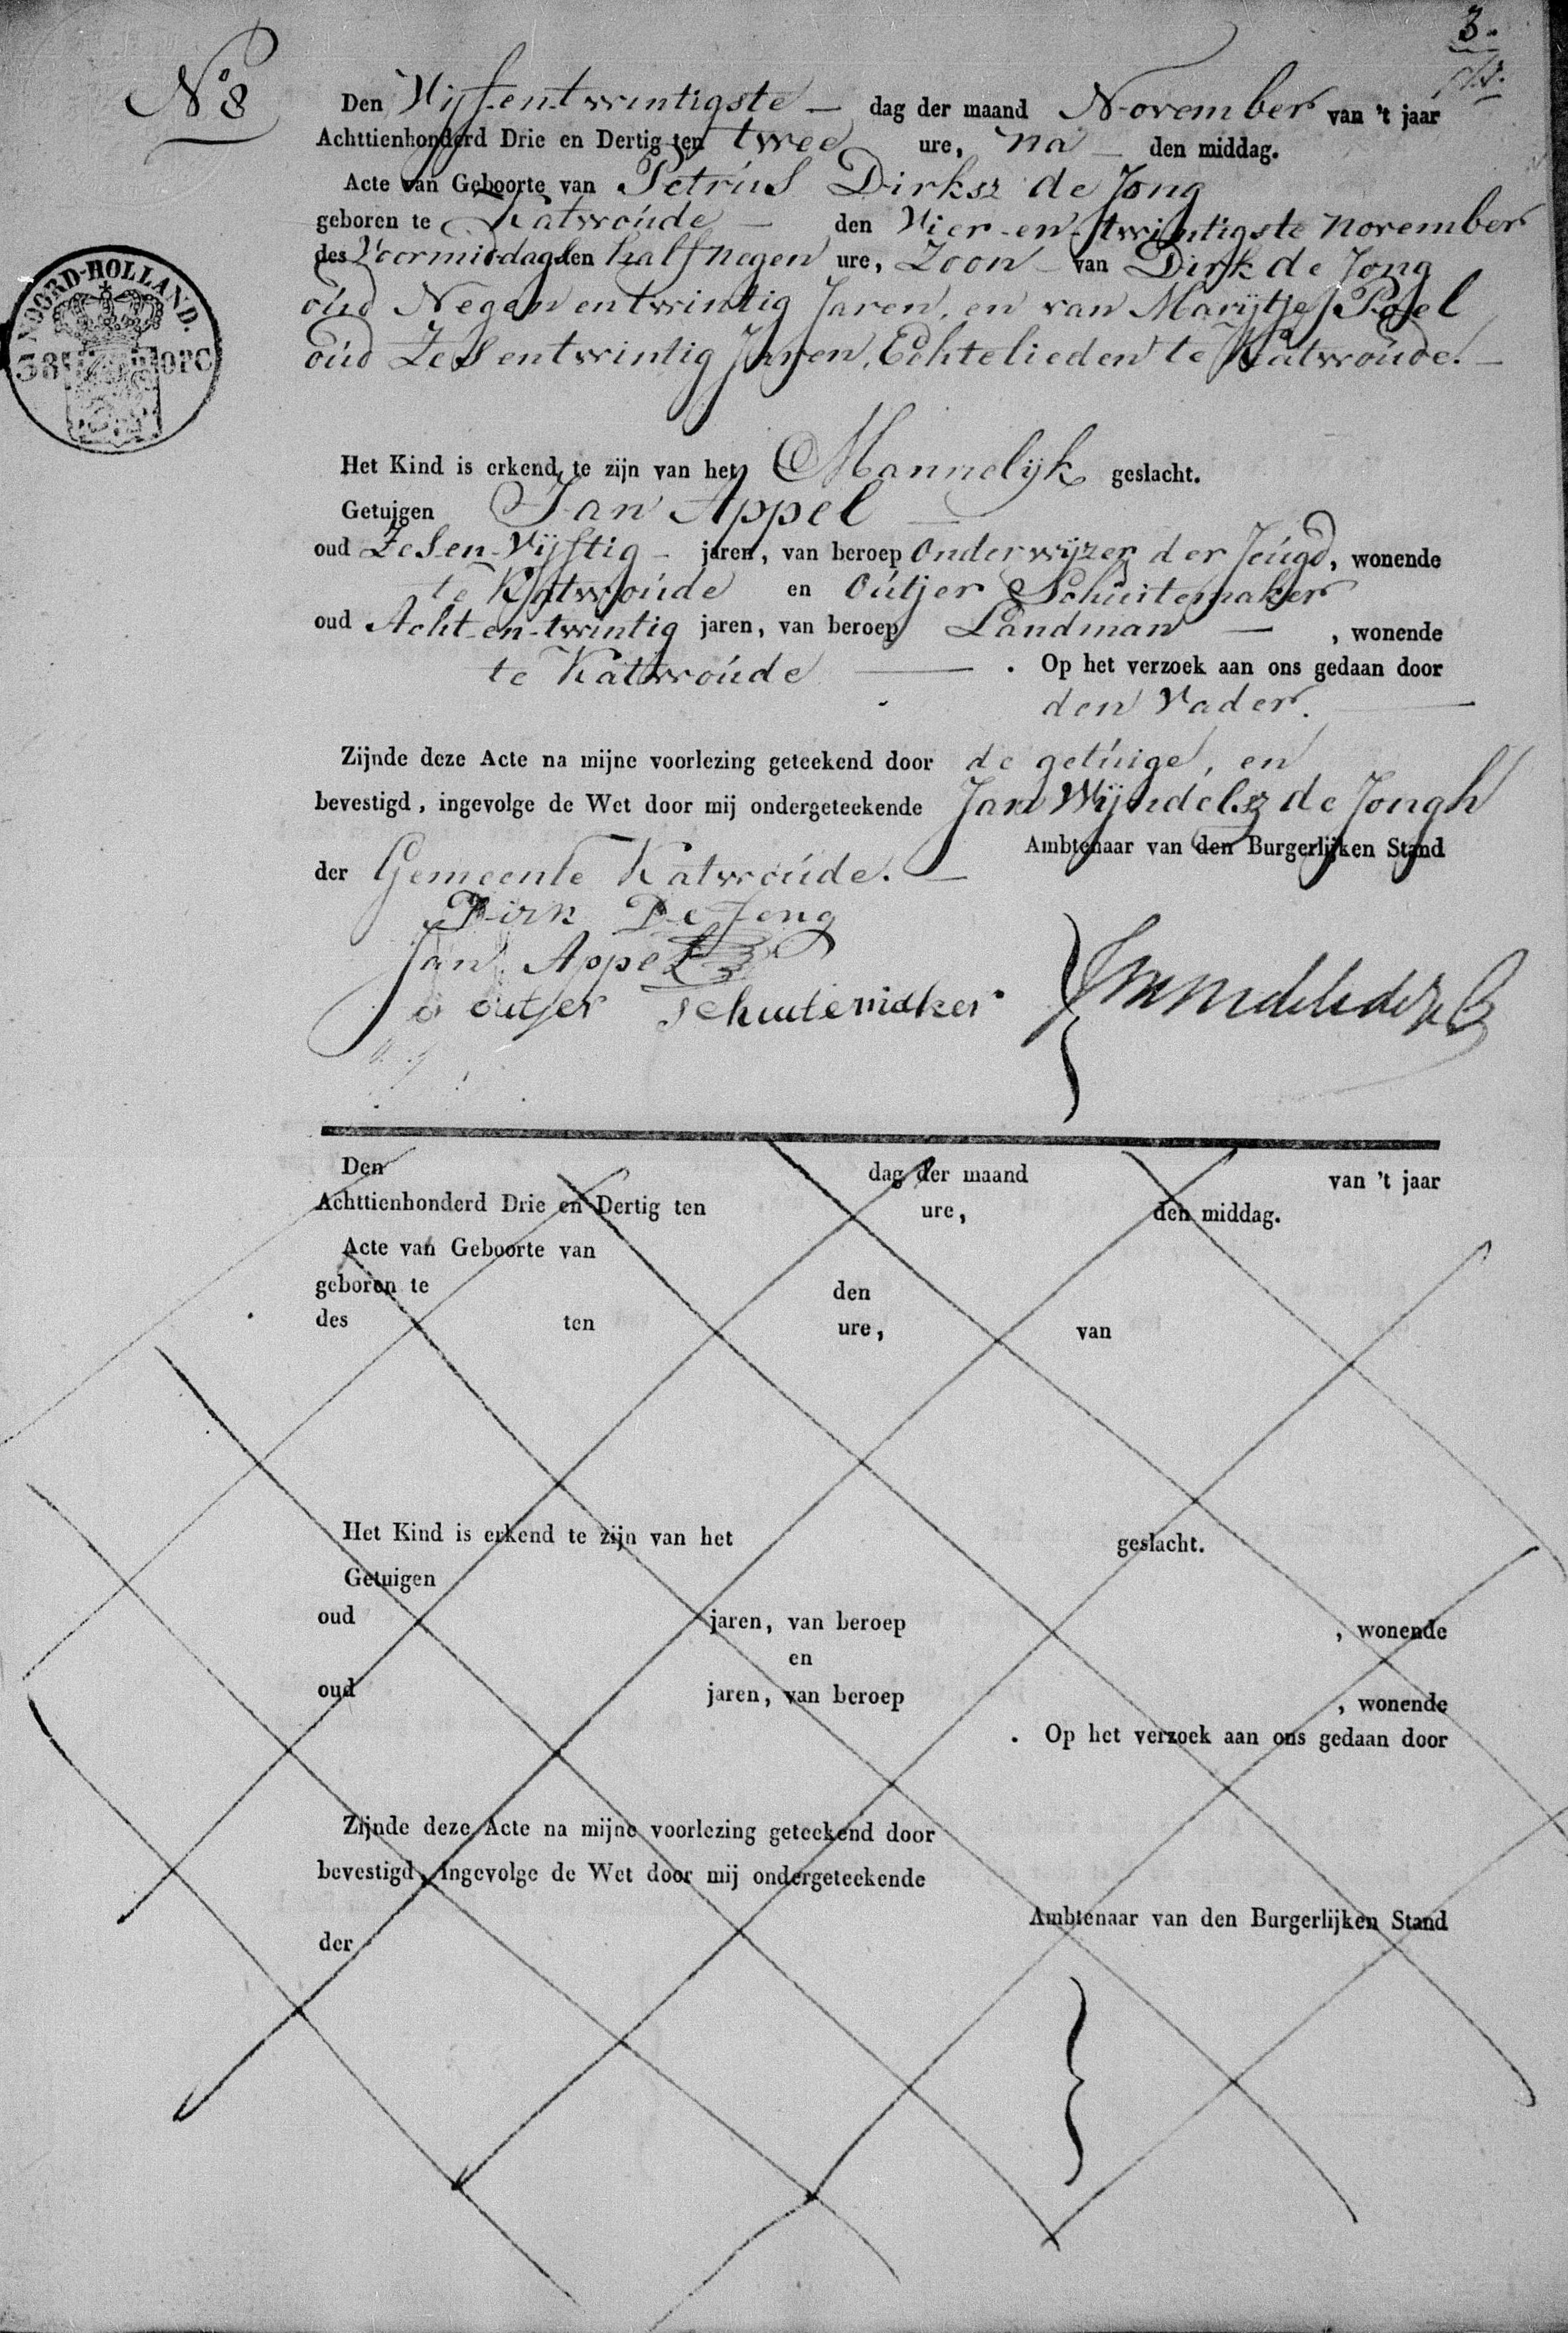 3.
No 8
Den Vijf-en-twintigste dag der maand November van 't jaar
Achttienhonderd Drie en Dertig ten twee ure, na den middag.
Acte van Geboorte van Petrus Dirksz de Jong
geboren te Katwoude den Vier-en-twintigste november
des Voormiddags ten half negen ure, Zoon van Dirk de Jong
oud Negen entwintig Jaren, en van Marijtje Poel
oud Zes entwintig Jaren, Echtelieden te Katwoude.
NOORD-HOLLAND.
38 OPC
Het Kind is erkend te zijn van het Mannelijk geslacht.
Getuigen Jan Appel
oud Zes-en-Vijftig jaren, van beroep Onderwijzer der Jeugd, wonende
te Katwoude en Outjer Schuitemaker
oud Acht-en-twintig jaren, van beroep Landman , wonende
te Katwoude . Op het verzoek aan ons gedaan door
den Vader.
Zijnde deze Acte na mijne voorlezing geteekend door de getuige, en
bevestigd, ingevolge de Wet door mij ondergeteekende Jan Wijndelsz de Jongh
Ambtenaar van den Burgerlijken Stand
der Gemeente Katwoude.
Dirk De Jong
Jan Appel
outjer schuitemaker
Den dag der maand van 't jaar
Achttienhonderd Drie en Dertig ten ure, den middag.
Acte van Geboorte van
geboren te den
des ten ure, van
Het Kind is erkend te zijn van het geslacht.
Getuigen
oud jaren, van beroep , wonende
en
oud jaren, van beroep , wonende
. Op het verzoek aan ons gedaan door
Zijnde deze Acte na mijne voorlezing geteekend door
bevestigd, ingevolge de Wet door mij ondergeteekende
Ambtenaar van den Burgerlijken Stand
der